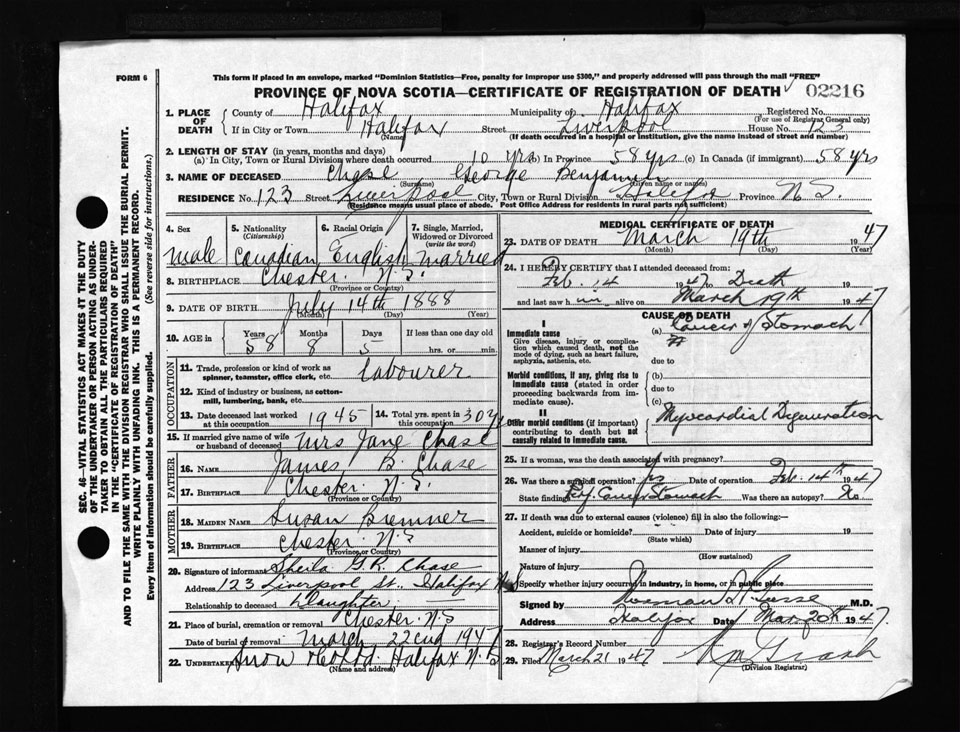 FORM 6
This form if placed in an envelope, marked "Dominion Statistics—Free, penalty for improper use $300," and properly addressed will pass through the mail "FREE"
PROVINCE OF NOVA SCOTIA—CERTIFICATE OF REGISTRATION OF DEATH 02216
1. PLACE OF DEATH { County of Halifax Municipality of Halifax Registered No.
(For use of Registrar General only)
If in City or Town Halifax Street Liverpool House No. 123
(Name) (If death occurred in a hospital or institution, give the name instead of street and number)
2. LENGTH OF STAY (in years, months and days)
(a) In City, Town or Rural Division where death occurred 10 yrs (b) In Province 58 yrs (c) In Canada (if immigrant) 58 yrs
3. NAME OF DECEASED Chase George Benjamin
(Surname) (Given name or names)
RESIDENCE No. 123 Street Liverpool City, Town or Rural Division Halifax Province N S
(Residence means usual place of abode. Post Office Address for residents in rural parts not sufficient)
4. Sex 5. Nationality (Citizenship) 6. Racial Origin 7. Single, Married, Widowed or Divorced (write the word)
male Canadian English married
8. BIRTHPLACE Chester N.S.
(Province or Country)
9. DATE OF BIRTH July 14th 1888
(Month) (Day) (Year)
10. AGE in { Years Months Days If less than one day old
58 8 5 hrs. or min.
OCCUPATION
11. Trade, profession or kind of work as spinner, teamster, office clerk, etc. labourer
12. Kind of industry or business, as cotton-mill, lumbering, bank, etc.
13. Date deceased last worked at this occupation 1945 14. Total yrs. spent in this occupation 30 yrs
15. If married give name of wife or husband of deceased Mrs Jane Chase
FATHER
16. NAME James B. Chase
17. BIRTHPLACE Chester N.S.
(Province or Country)
MOTHER
18. MAIDEN NAME Susan Bremner
19. BIRTHPLACE Chester N.S
(Province or Country)
20. Signature of informant Sheila G.R. Chase
Address 123 Liverpool St., Halifax N S
Relationship to deceased Daughter
21. Place of burial, cremation or removal Chester N.S
Date of burial or removal March 22nd 1947
22. UNDERTAKER Snow Halifax N.S
(Name and address)
MEDICAL CERTIFICATE OF DEATH
23. DATE OF DEATH March 19th 1947
(Month) (Day) (Year)
24. I HEREBY CERTIFY that I attended deceased from:
Feb. 14 1947 to Death
and last saw him alive on March 19th 1947
CAUSE OF DEATH
I
Immediate cause
Give disease, injury or complication which caused death, not the mode of dying, such as heart failure, asphyxia, asthenia, etc.
(a) Cancer of Stomach
due to
Morbid conditions, if any, giving rise to immediate cause (stated in order proceeding backwards from immediate cause).
(b)
due to
(c)
II
Other morbid conditions (if important) contributing to death but not causally related to immediate cause.
Myocardial Degeneration
25. If a woman, was the death associated with pregnancy?
26. Was there a surgical operation? yes Date of operation Feb. 14th 1947
State findings Cancer Stomach Was there an autopsy? No
27. If death was due to external causes (violence) fill in also the following:—
Accident, suicide or homicide? Date 19
(State which)
Manner of injury
(How sustained)
Nature of injury
Specify whether injury occurred in industry, in home, or in public place
Signed by Norman H. Gosse M.D.
Address Halifax Date Mar 20th 1947.
28. Registrar's Record Number
29. Filed March 21 1947
(Division Registrar)
SEC. 46—VITAL STATISTICS ACT MAKES IT THE DUTY
OF THE UNDERTAKER OR PERSON ACTING AS UNDER-
TAKER TO OBTAIN ALL THE PARTICULARS REQUIRED
IN THE "CERTIFICATE OF REGISTRATION OF DEATH"
AND TO FILE THE SAME WITH THE DIVISION REGISTRAR WHO SHALL ISSUE THE BURIAL PERMIT.
WRITE PLAINLY WITH UNFADING INK. THIS IS A PERMANENT RECORD.
Every item of information should be carefully supplied. (See reverse side for instructions.)